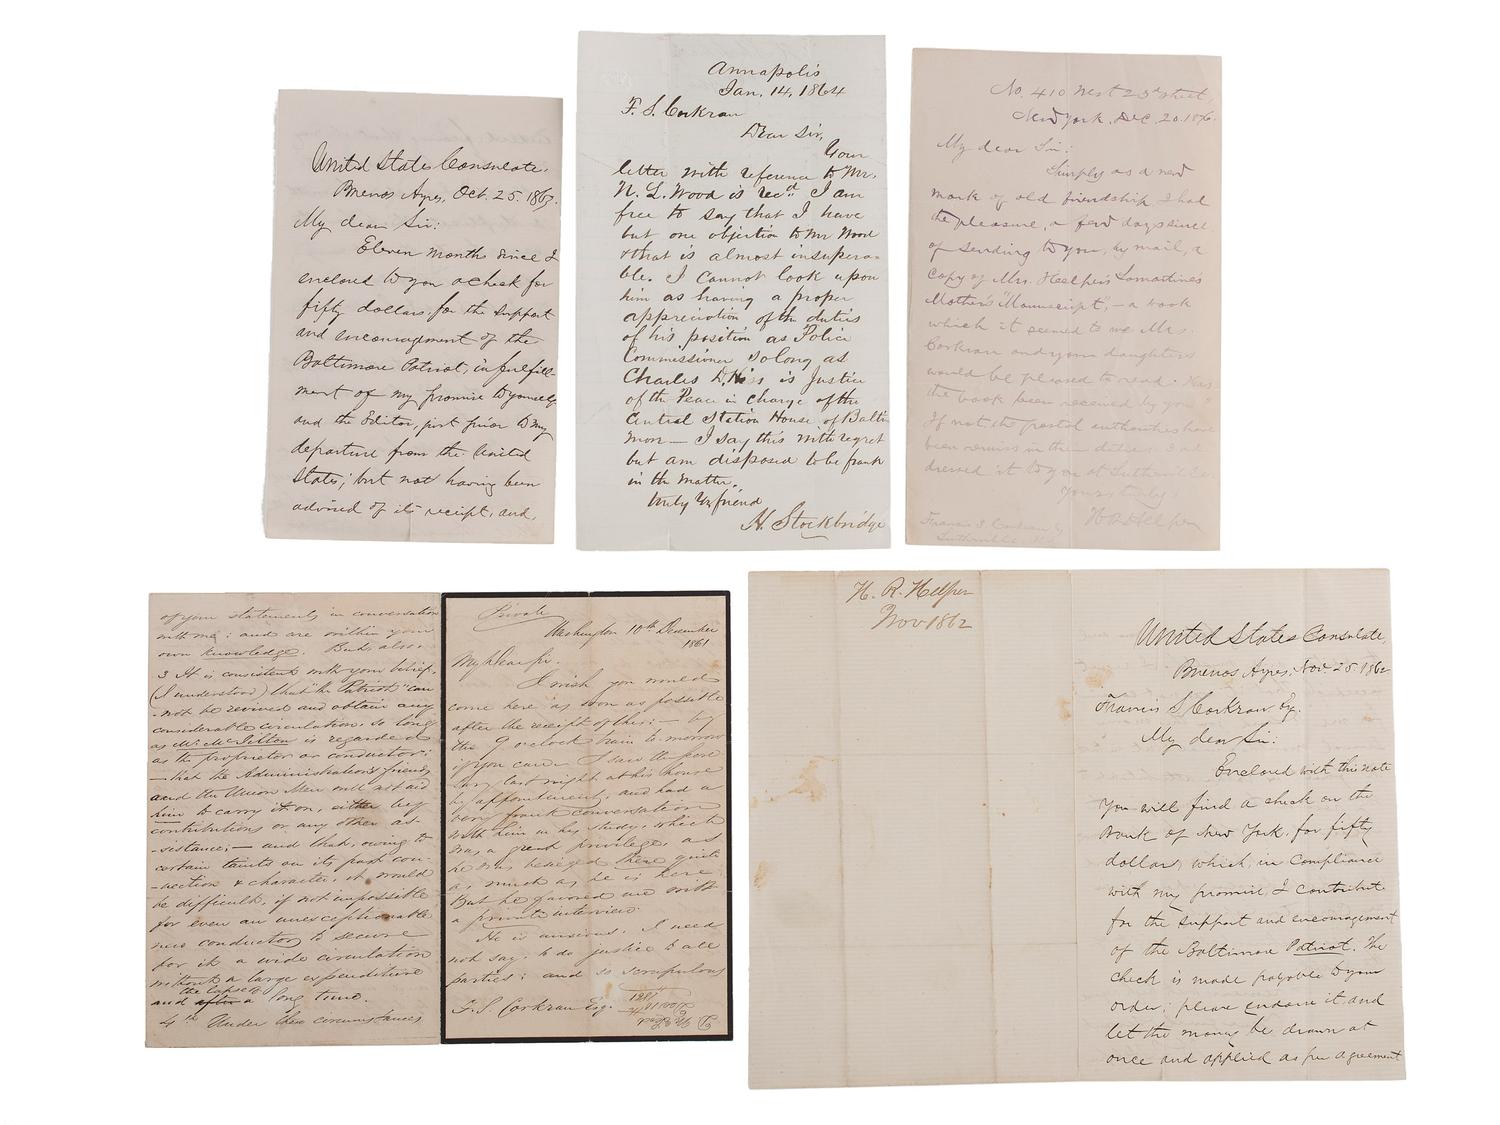 United States Consulate,
Buenos Ayres, Oct. 25. 1863.
My dear Sir:
Eleven months since I
enclosed to you a check for
fifty dollars, for the support
and encouragment of the
Baltimore Patriot, in fulfill-
ment of my promise to yourself
and the Editor, just prior to my
departure from the United
States; but not having been
advised of its receipt, and,
Annapolis
Jan. 14, 1864
F. S. Corkran
Dear Sir,
Your
letter with reference to Mr.
N. L. Wood is recd I am
free to say that I have
but one objection to Mr Wood
& that is almost insupera-
ble. I cannot look upon
him as having a proper
appreciation of the duties
of his position as Police
Commissioner so long as
Charles D. Hiss is Justice
of the Peace in charge of the
Central Station House of Balti
more — I say this with regret
but am disposed to be frank
in the matter.
truly Yr friend
H. Stockbridge
No. 410 West 23d Street,
New York, Dec. 20. 1876.
My dear Sir:
Simply as a new
mark of old friendship I had
the pleasure, a few days since
of sending to you, by mail, a
copy of Mrs. Helper's Lamartine's
Mother's "Manuscript", — a book
which it seemed to me Mrs.
Corkran and your daughters
would be pleased to read. Has
the book been received by you?
If not the postal authorities have
been remiss in their duties. I ad-
dressed it to you at Lutherville.
Yours truly,
H R Helper
Francis S. Corkran Esq
Lutherville, Md.
of your statements in conversation
with me; and are within your
own knowledge. But, also,
3 It is consistent with your belief,
(I understood) that "the Patriot" can
-not be revived and obtain any
considerable circulation, so long
as Mr. McJilton is regarded
as the proprietor or conductor;
— that the Administration's friends
and the Union Men will not aid
him to carry it on, either by
contributions or any other as-
-sistance; — and that, owing to
certain taints on its past con-
-nection & character, it would
be difficult, if not impossible
for even an unexceptionable
new conductor, to secure
for it a wide circulation
without a large expenditure
the lapse of
and after a long time.
4th Under these circumstances
Private
Washington 10th December
1861
My Dear Sir.
I wish you would
come here as soon as possible
after the receipt of this: — by
the 9 o'clock train to-morrow
if you can. I saw the
last night at his house
by appointment, and had a
very frank conversation
with him in his study, which
was a great privilege, as
he was besieged there quite
as much as he is here.
But he favored me with
a private interview.
He is anxious, I need
not say, to do justice to all
parties; and so scrupulous
F. S. Corkran Esq.
1861
H. R. Helper
Nov 1862
United States Consulate,
Buenos Ayres, Nov. 25. 1862
Francis S. Corkran Esq.
My dear Sir:
Enclosed with this note
you will find a check on the
Bank of New York, for fifty
dollars, which, in compliance
with my promise I contribute
for the support and encouragement
of the Baltimore Patriot. The
check is made payable to your
order; please endorse it and
let the money be drawn at
once and applied as per agreement